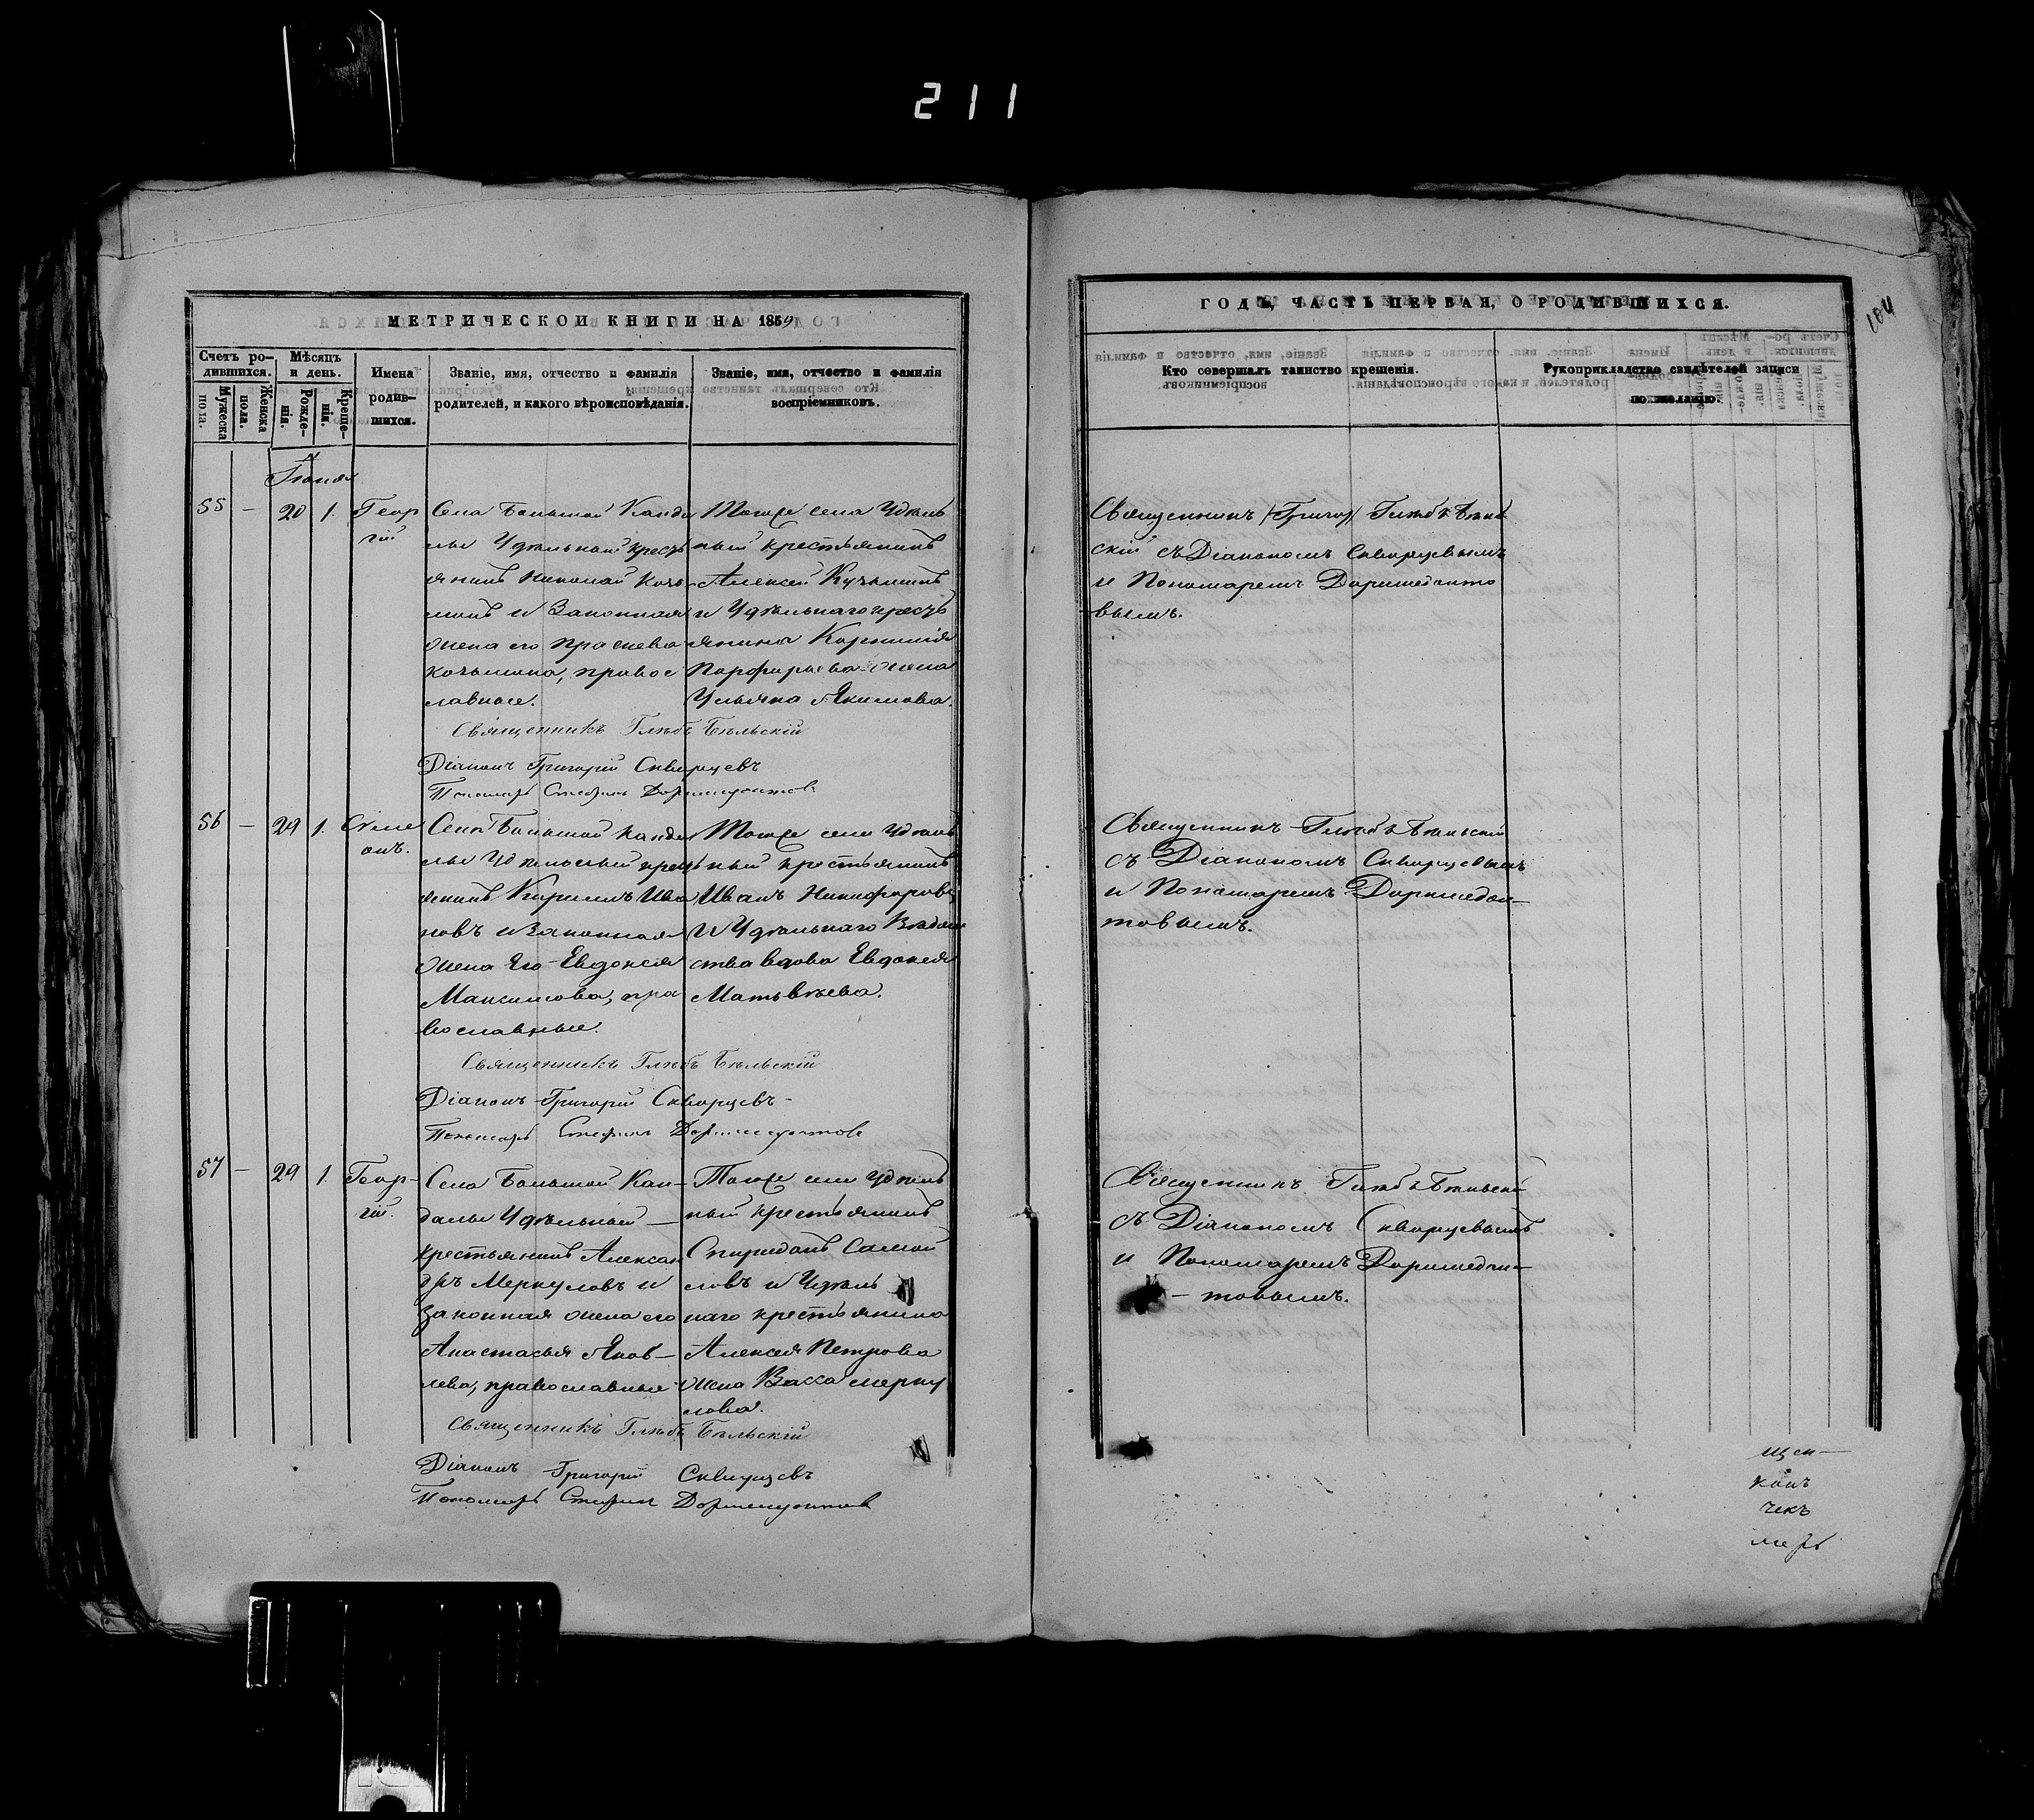 211
МЕТРИЧЕСКОЙ КНИГИ НА 1859
Счетъ ро-
дившихся.
Мужеска
пола.
Женска
пола.
Мѣсяцъ
и день.
Рожде-
нія.
Креще-
нія.
Имена
родив-
шихся.
Званіе, имя, отчество и фамилія
родителей, и какого вѣроисповѣданія.
Званіе, имя, отчество и фамилія
воспріемниковъ.
55 — 20 1. Геор
гій
Села Большой Канда
лы Удѣльный кресть
янинъ Николай Козь
минъ и Законная
жена его
Козьмина, правос
лавные.
Тогоже села Удѣль
ный крестьянинъ
Алексей Кузьминъ
и Удѣльнаго кресть
янина
Порфирьева жена
Ульяна Якимова.
Священникъ Глѣбъ Бѣльскій
Діаконъ Григорій Скворцевъ
Пономарь Стефанъ Доримедонтовъ
56 — 29 1. Симе
онъ.
Села Большой Канда
лы Удѣльный крест
янинъ Кирилъ Ива
новъ и Законная
жена Его Евдокея
Максимова, пра
вославные.
Тогоже села Удѣль
ный крестьянинъ
Иванъ Никифоровъ
и Удѣльнаго Ведом
ства вдова Евдокея
Матьвѣева.
Священникъ Глѣбъ Бѣльскій
Діаконъ Григорій Скворцевъ
Пономарь Стефанъ Доримедонтовъ
57 — 29 1. Геор-
гій.
Села Большой Кан-
далы Удѣльный —
крестьянинъ Алексан
дръ Меркуловъ и
Законная жена его
Анастасья Яков-
лева, православные
Тогоже села Удѣль
ный крестьянинъ
Спиридонъ Самой
ловъ и Удѣль
наго крестьянина
Алексея Петрова
жена Васса Мерку
лова.
Священникъ Глѣбъ Бѣльскій
Діаконъ Григорій Скворцевъ
Пономарь Стефанъ Доримедонтовъ
ГОДЪ, ЧАСТЬ ПЕРВАЯ, О РОДИВШИХСЯ.
104
Кто совершалъ таинство крещенія.
Рукоприкладство свидѣтелей записи
по желанію.
Священникъ Глѣбъ Бѣль
скій съ Діакономъ Скворцевымъ
и Пономаремъ Доримедонто
вымъ.
Священникъ Глѣбъ Бѣльскій
съ Діакономъ Скворцевымъ
и Пономаремъ Доримедон-
товымъ.
Священникъ Глѣбъ Бѣльскій
съ Діакономъ Скворцевымъ
и Пономаремъ Доримедон-
— товымъ.
щен-
конъ